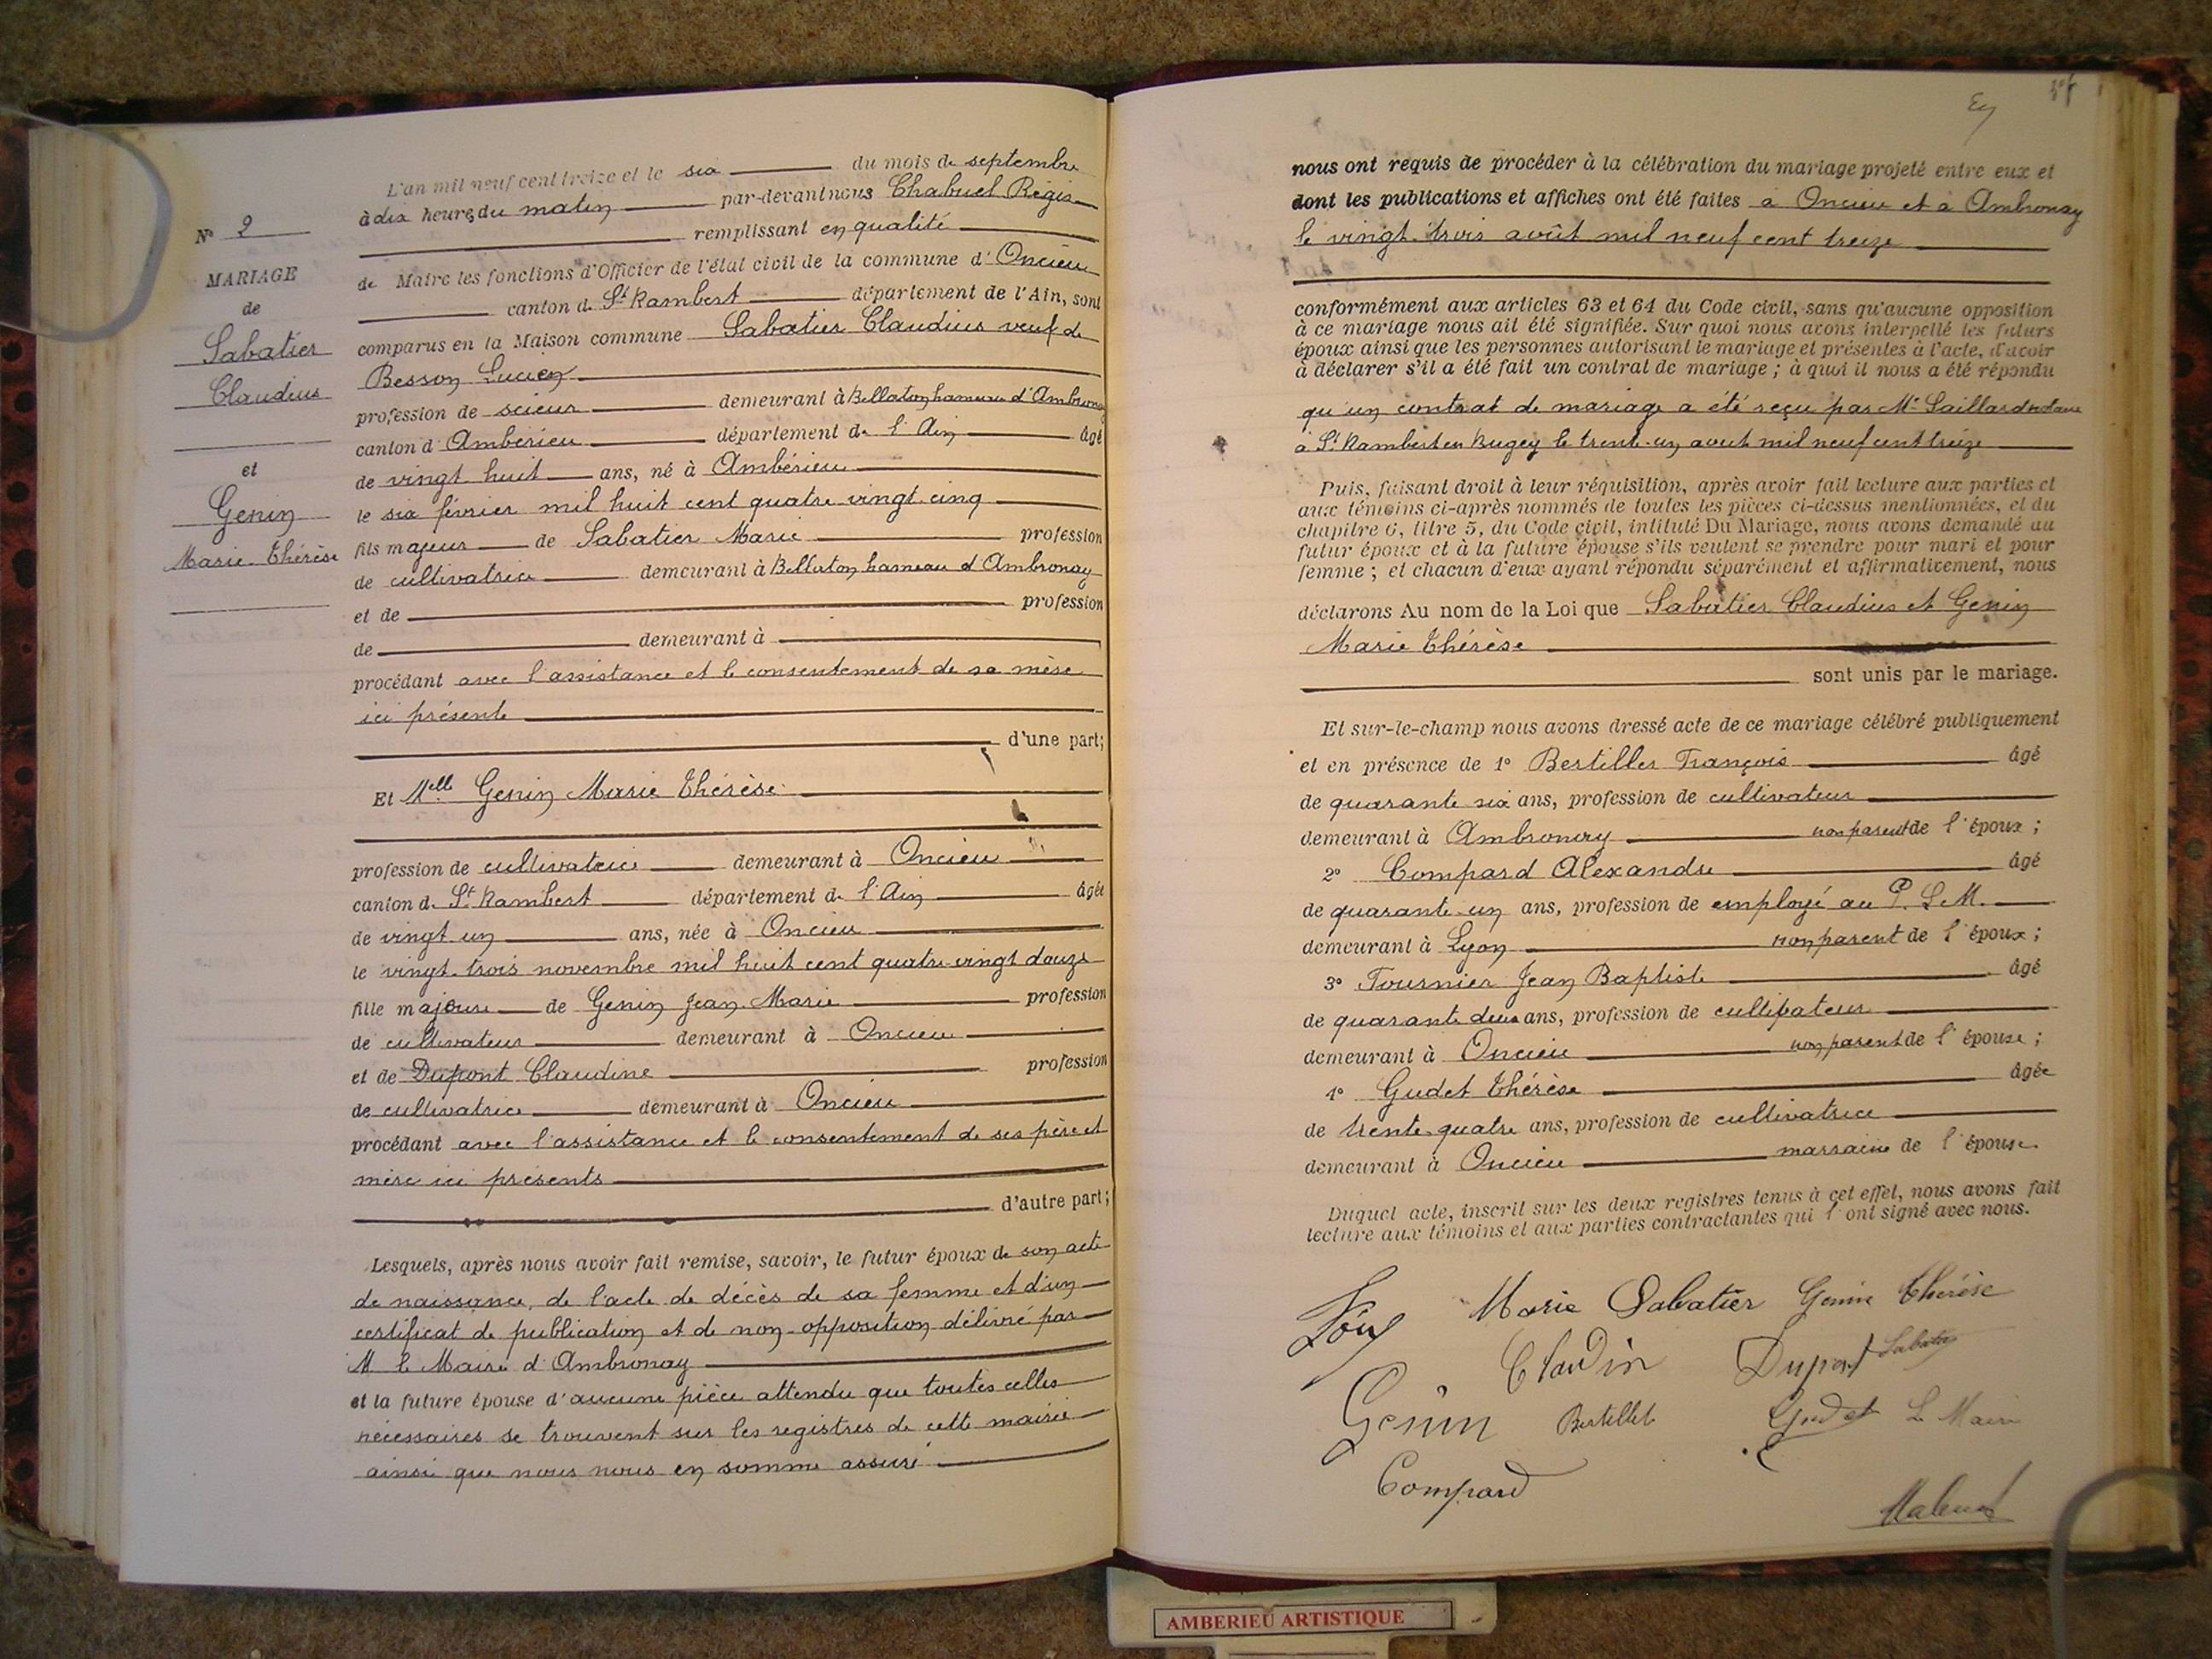 L'an mil neuf cent treize et le six du mois de septembre
à dix heures du matin par-devant nous Chabuel Régis
remplissant en qualité
de Maire les fonctions d'Officier de l'état civil de la commune d'Oncieu
canton de St Rambert département de l'Ain, sont
comparus en la Maison commune Sabatier Claudius veuf de
Besson Lucien
profession de scieur demeurant à Bellaton hameau d'Ambronay
canton d'Ambérieu département de l'Ain âgé
de vingt huit ans, né à Ambérieu
le six février mil huit cent quatre vingt cinq
fils majeur de Sabatier Marie profession
de cultivatrice demeurant à Bellaton hameau d'Ambronay
et de profession
de demeurant à
procédant avec l'assistance et le consentement de sa mère
ici présente
d'une part;
Et Melle Genin Marie Thérèse
profession de cultivatrice demeurant à Oncieu
canton de St Rambert département de l'Ain âgée
de vingt un ans, née à Oncieu
le vingt-trois novembre mil huit cent quatre-vingt douze
fille majeure de Genin Jean Marie profession
de cultivateur demeurant à Oncieu
et de Dupont Claudine profession
de cultivatrice demeurant à Oncieu
procédant avec l'assistance et le consentement de ses père et
mère ici présents
d'autre part;
Lesquels, après nous avoir fait remise, savoir, le futur époux de son acte
de naissance, de l'acte de décès de sa femme et d'un
certificat de publication et de non-opposition délivré par
M le Maire d'Ambronay
et la future épouse d'aucune pièce attendu que toutes celles
nécessaires se trouvent sur les registres de cette mairie
ainsi que nous nous en somme assuré
N° 2
MARIAGE
de
Sabatier
Claudius
et
Genin
Marie-Thérèse
nous ont requis de procéder à la célébration du mariage projeté entre eux et
dont les publications et affiches ont été faites à Oncieu et à Ambronay
le vingt-trois août mil neuf cent treize
conformément aux articles 63 et 64 du Code civil, sans qu'aucune opposition
à ce mariage nous ait été signifiée. Sur quoi nous avons interpellé les futurs
époux ainsi que les personnes autorisant le mariage et présentes à l'acte, d'avoir
à déclarer s'il a été fait un contrat de mariage; à quoi il nous a été répondu
qu'un contrat de mariage a été reçu par Me Saillard notaire
à St Rambert en Bugey le trente-un aout mil neuf cent treize
Puis, faisant droit à leur réquisition, après avoir fait lecture aux parties et
aux témoins ci-après nommés de toutes les pièces ci-dessus mentionnées, et du
chapitre 6, titre 5, du Code civil, intitulé Du Mariage, nous avons demandé au
futur époux et à la future épouse s'ils veulent se prendre pour mari et pour
femme; et chacun d'eux ayant répondu séparément et affirmativement, nous
déclarons Au nom de la Loi que Sabatier Claudius et Genin
Marie Thérèse
sont unis par le mariage.
Et sur-le-champ nous avons dressé acte de ce mariage célébré publiquement
et en présence de 1° Bertiller François âgé
de quarante six ans, profession de cultivateur
demeurant à Ambronay non parent de l'époux;
2° Compard Alexandre âgé
de quarante-un ans, profession de employé au P.L.M.
demeurant à Lyon non parent de l'époux;
3° Tournier Jean Baptiste âgé
de quarante deux ans, profession de cultivateur
demeurant à Oncieu non parent de l'épouse;
4° Gudet Thérèse âgée
de trente quatre ans, profession de cultivatrice
demeurant à Oncieu marraine de l'épouse
Duquel acte, inscrit sur les deux registres tenus à cet effet, nous avons fait
lecture aux témoins et aux parties contractantes qui l'ont signé avec nous.
Marie Sabatier Genin Thérèse
Claudin Dupont Sabatier
Genin Bertillet Gudet Le Maire
Compard
AMBERIEU ARTISTIQUE